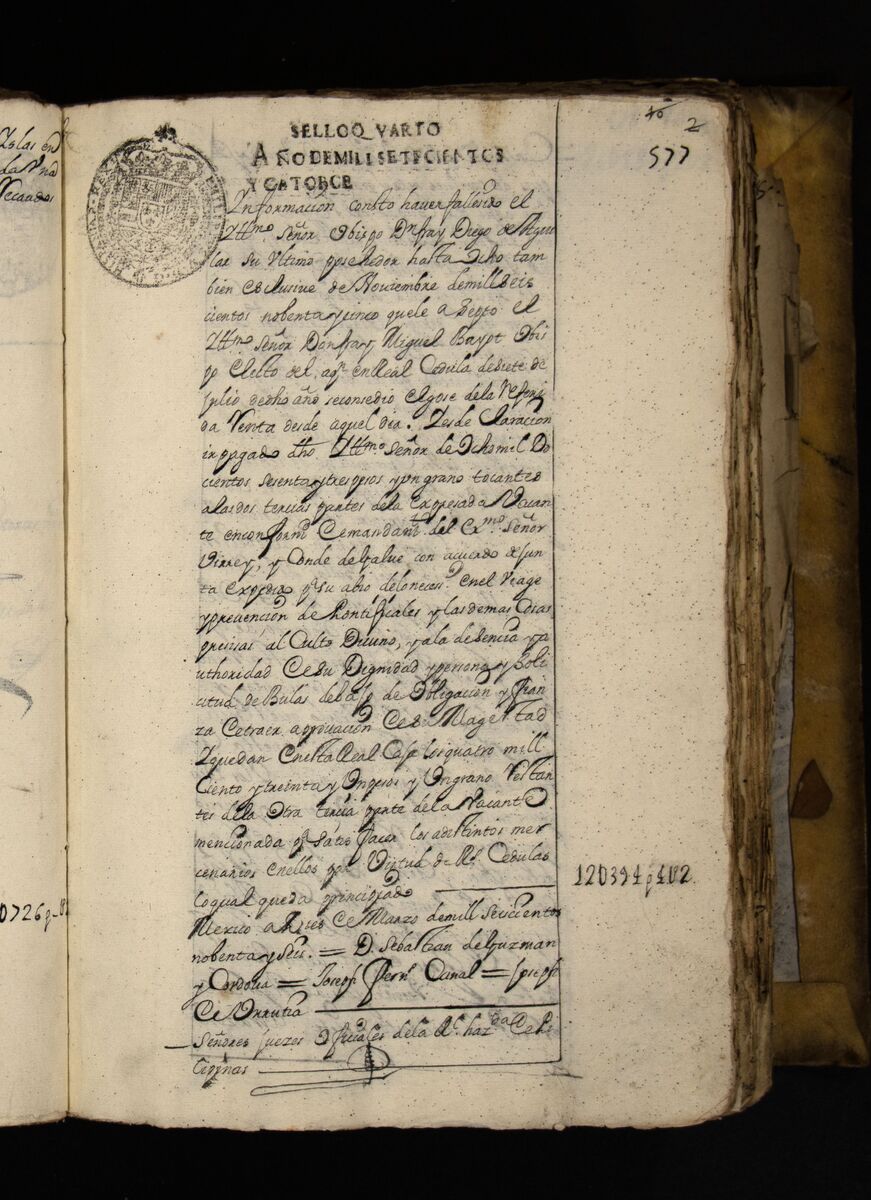 Yslas en
da Una
Recaudos
0726p-
SELLOQVARTO
AÑODEMILLSETECIENTOS
Y CATORCE
10 2
577
Informacion consto haver fallesido el
Yllmo Señor Obispo Dn fray Diego de Agui
lar su Ultimo posehedor hasta Ocho tam
bien esclusiue de Noviembre demillseis
cientos nobenta y sinco quele asepto el
Yllmo Señor Don fray Miguel Bayot Obis
po Electo del, aqn en Real Cedula de siete de
julio de dho año seconsedio el gose dela referi
da Renta desde aquel dia. Y es declaracion
ir pagado dho Yllmo Señor de Ocho mil Do
cientos sesenta y tres pesos y un grano tocantes
alas dos tercias partes dela expresada Vacan
te enconformd de mandamto del Exmo Señor
Virrey, y Conde de Galue con acuerdo de jun
ta expedido pa su abio delo neceso enel Viage
y prevencion de Pontificales y las demas Cosas
presisas al Culto Divino, y ala desencia y a
uthoridad de su Dignidad y persona y Soli
citud de Bulas debajo de Obligacion y fian
za de traer aprovacion de su Magestad
Y quedan en esta Real Caja los quatro mill
Ciento y treinta y Un pesos y Un grano Restan
tes dela Otra tercia parte dela Vacante
mencionada pa satisfacer los adistintos mer
cenarios en ellos por Virtud de Rs Cedulas
lo qual queda prinsipiado
Mexico a de Marzo demill Seiscientos
nobenta y Seis. = D. Sebastian de Guzman
y Cordoua = Joseph Fernz Canal = Joseph
de Urrutia
Señores juezes Oficiales dela Rl hazda de Phi
lipinas
120394p402